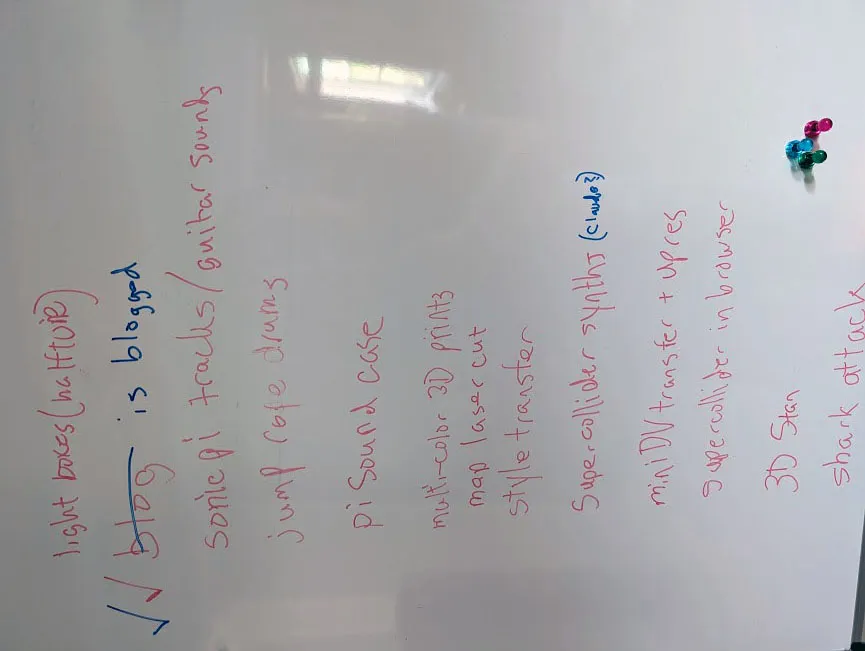 light boxes (halftone)
√√ blog is blogged
sonic pi tracks/guitar sounds
jump rope drums
pi sound case
multi-color 3D prints
map laser cut
style transfer
supercollider synths (claude?)
miniDV transfer + upres
supercollider in browser
3D Stan
shark attack